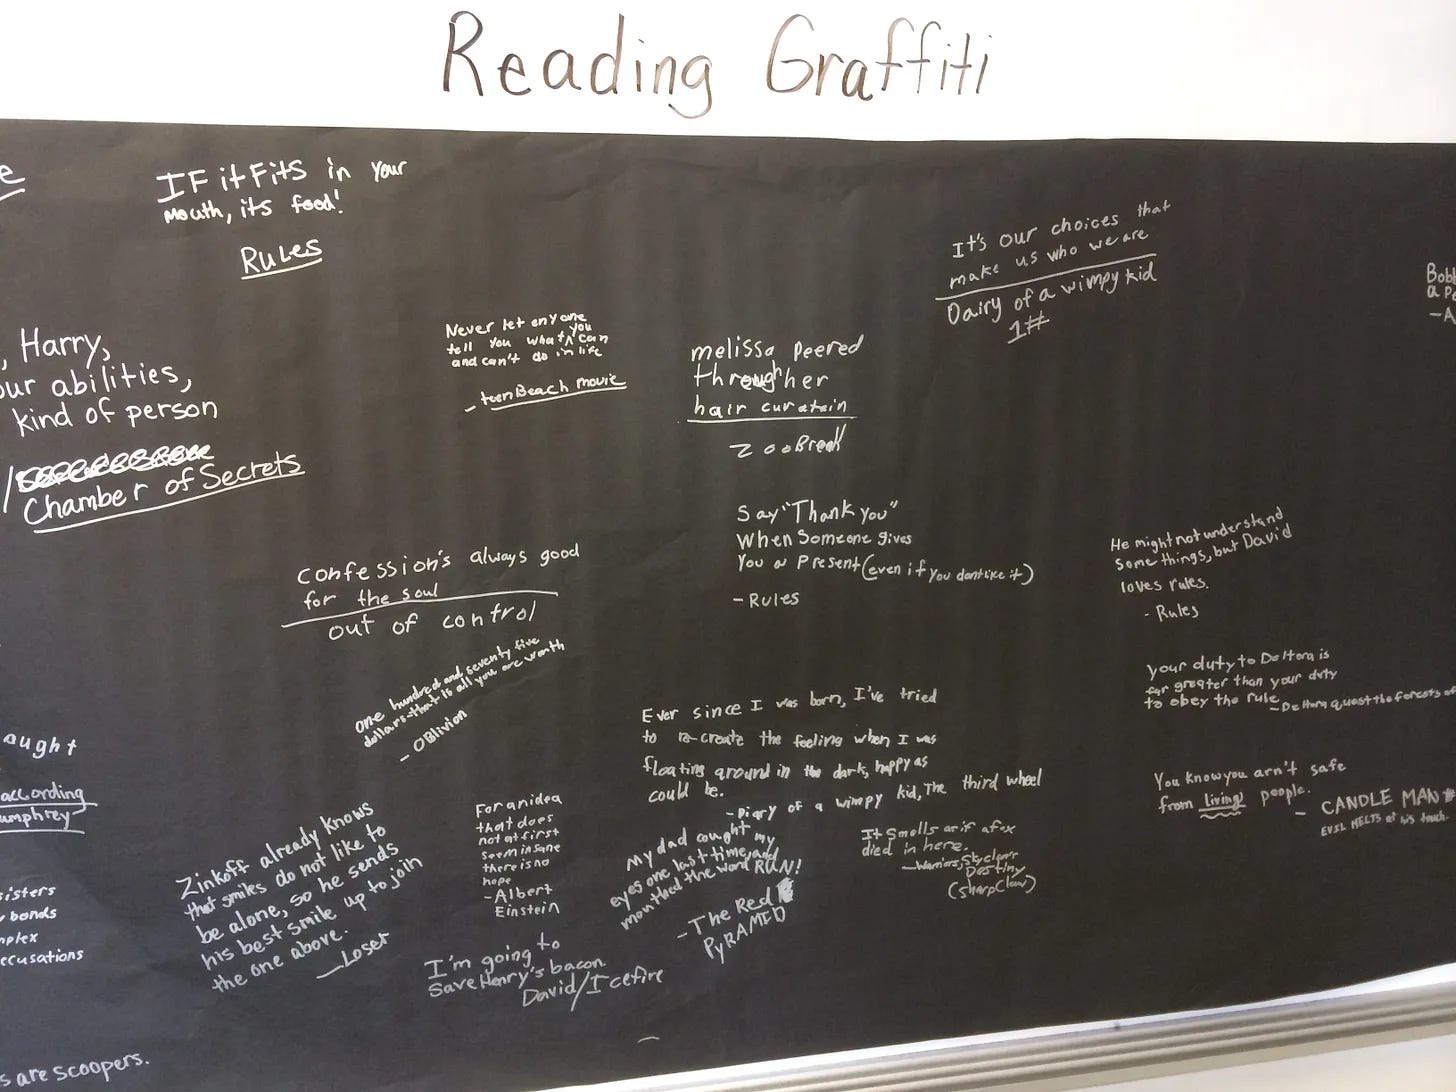 Reading Graffiti
e
IF it Fits in your
Mouth, its food!
Rules
, Harry,
our abilities,
kind of person
Chamber of Secrets
Never let anyone
tell you what you can
and can't do in life
- teen Beach movie
melissa peered
through her
hair curatain
ZooBreak
It's our choices that
make us who we are
Dairy of a wimpy kid
1#
Bobb
a Pa
- A
Say "Thank you"
When Someone gives
You a Present (even if you dont like it)
- Rules
He might not understand
some things, but David
loves rules.
- Rules
Confession's always good
for the soul
out of control
one hundred and seventy five
dollars-that is all you are worth
- Oblivion
your duty to Deltora is
far greater than your duty
to obey the rule
- Deltora quest the forests of
Ever since I was born, I've tried
to re-create the feeling when I was
floating around in the dark, happy as
could be.
- Diary of a wimpy kid, The third wheel
You know you arn't safe
from living people.
- CANDLE MAN #
EVIL MELTS at his touch.
aught
according
umphrey
isters
y bonds
mplex
ccusations
Zinkoff already knows
that smiles do not like to
be alone, so he sends
his best smile up to join
the one above.
- Loser
For an idea
that does
not at first
seem insane
there is no
hope
- Albert
Einstein
My dad caught my
eyes one last time, and
mouthed the word RUN!
- The Red
PyRAMID
It Smells as if a fox
died in here.
- Warriors, Skyclan's
Destiny
(SharpClaw)
I'm going to
Save Henry's bacon.
David/Icefire
s are scoopers.